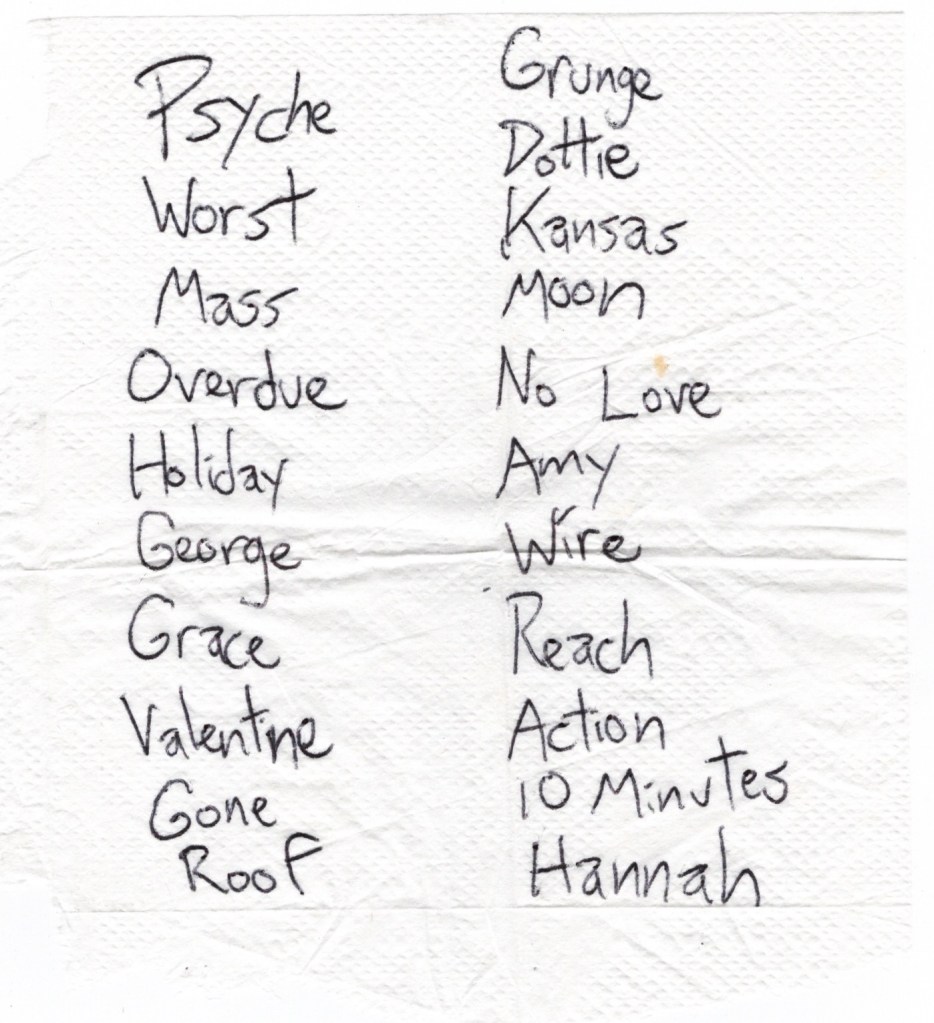 Psyche
Worst
Mass
Overdue
Holiday
George
Grace
Valentine
Gone
Roof
Grunge
Dottie
Kansas
Moon
No Love
Amy
Wire
Reach
Action
10 Minutes
Hannah